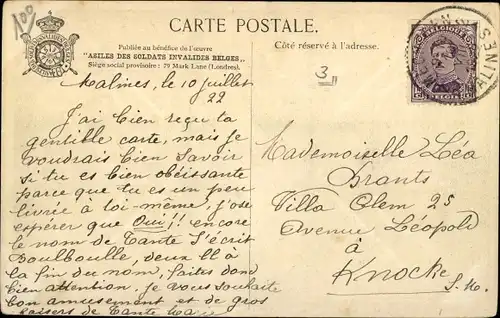 100
CARTE POSTALE.
Publiée au bénéfice de l'œuvre
"ASILES DES SOLDATS INVALIDES BELGES,,
Siège social provisoire : 79 Mark Lane (Londres).
Côté réservé à l'adresse.
3
Malines, le 10 juillet
22
J'ai bien reçu ta
gentille carte, mais je
voudrais bien savoir
si tu es bien obéissante
parce que tu es un peu
livrée à toi-même, j'ose
espérer que Oui!! encore
le nom de Tante s'écrit
Boulboulle, deux ll à
la fin du nom, faites donc
bien attention. je vous souhaite
bon amusement et de gros
baisers de Tante
Mademoiselle Léa
Drants
Villa Clem 25
Avenue Léopold
à
Knocke
s. M.